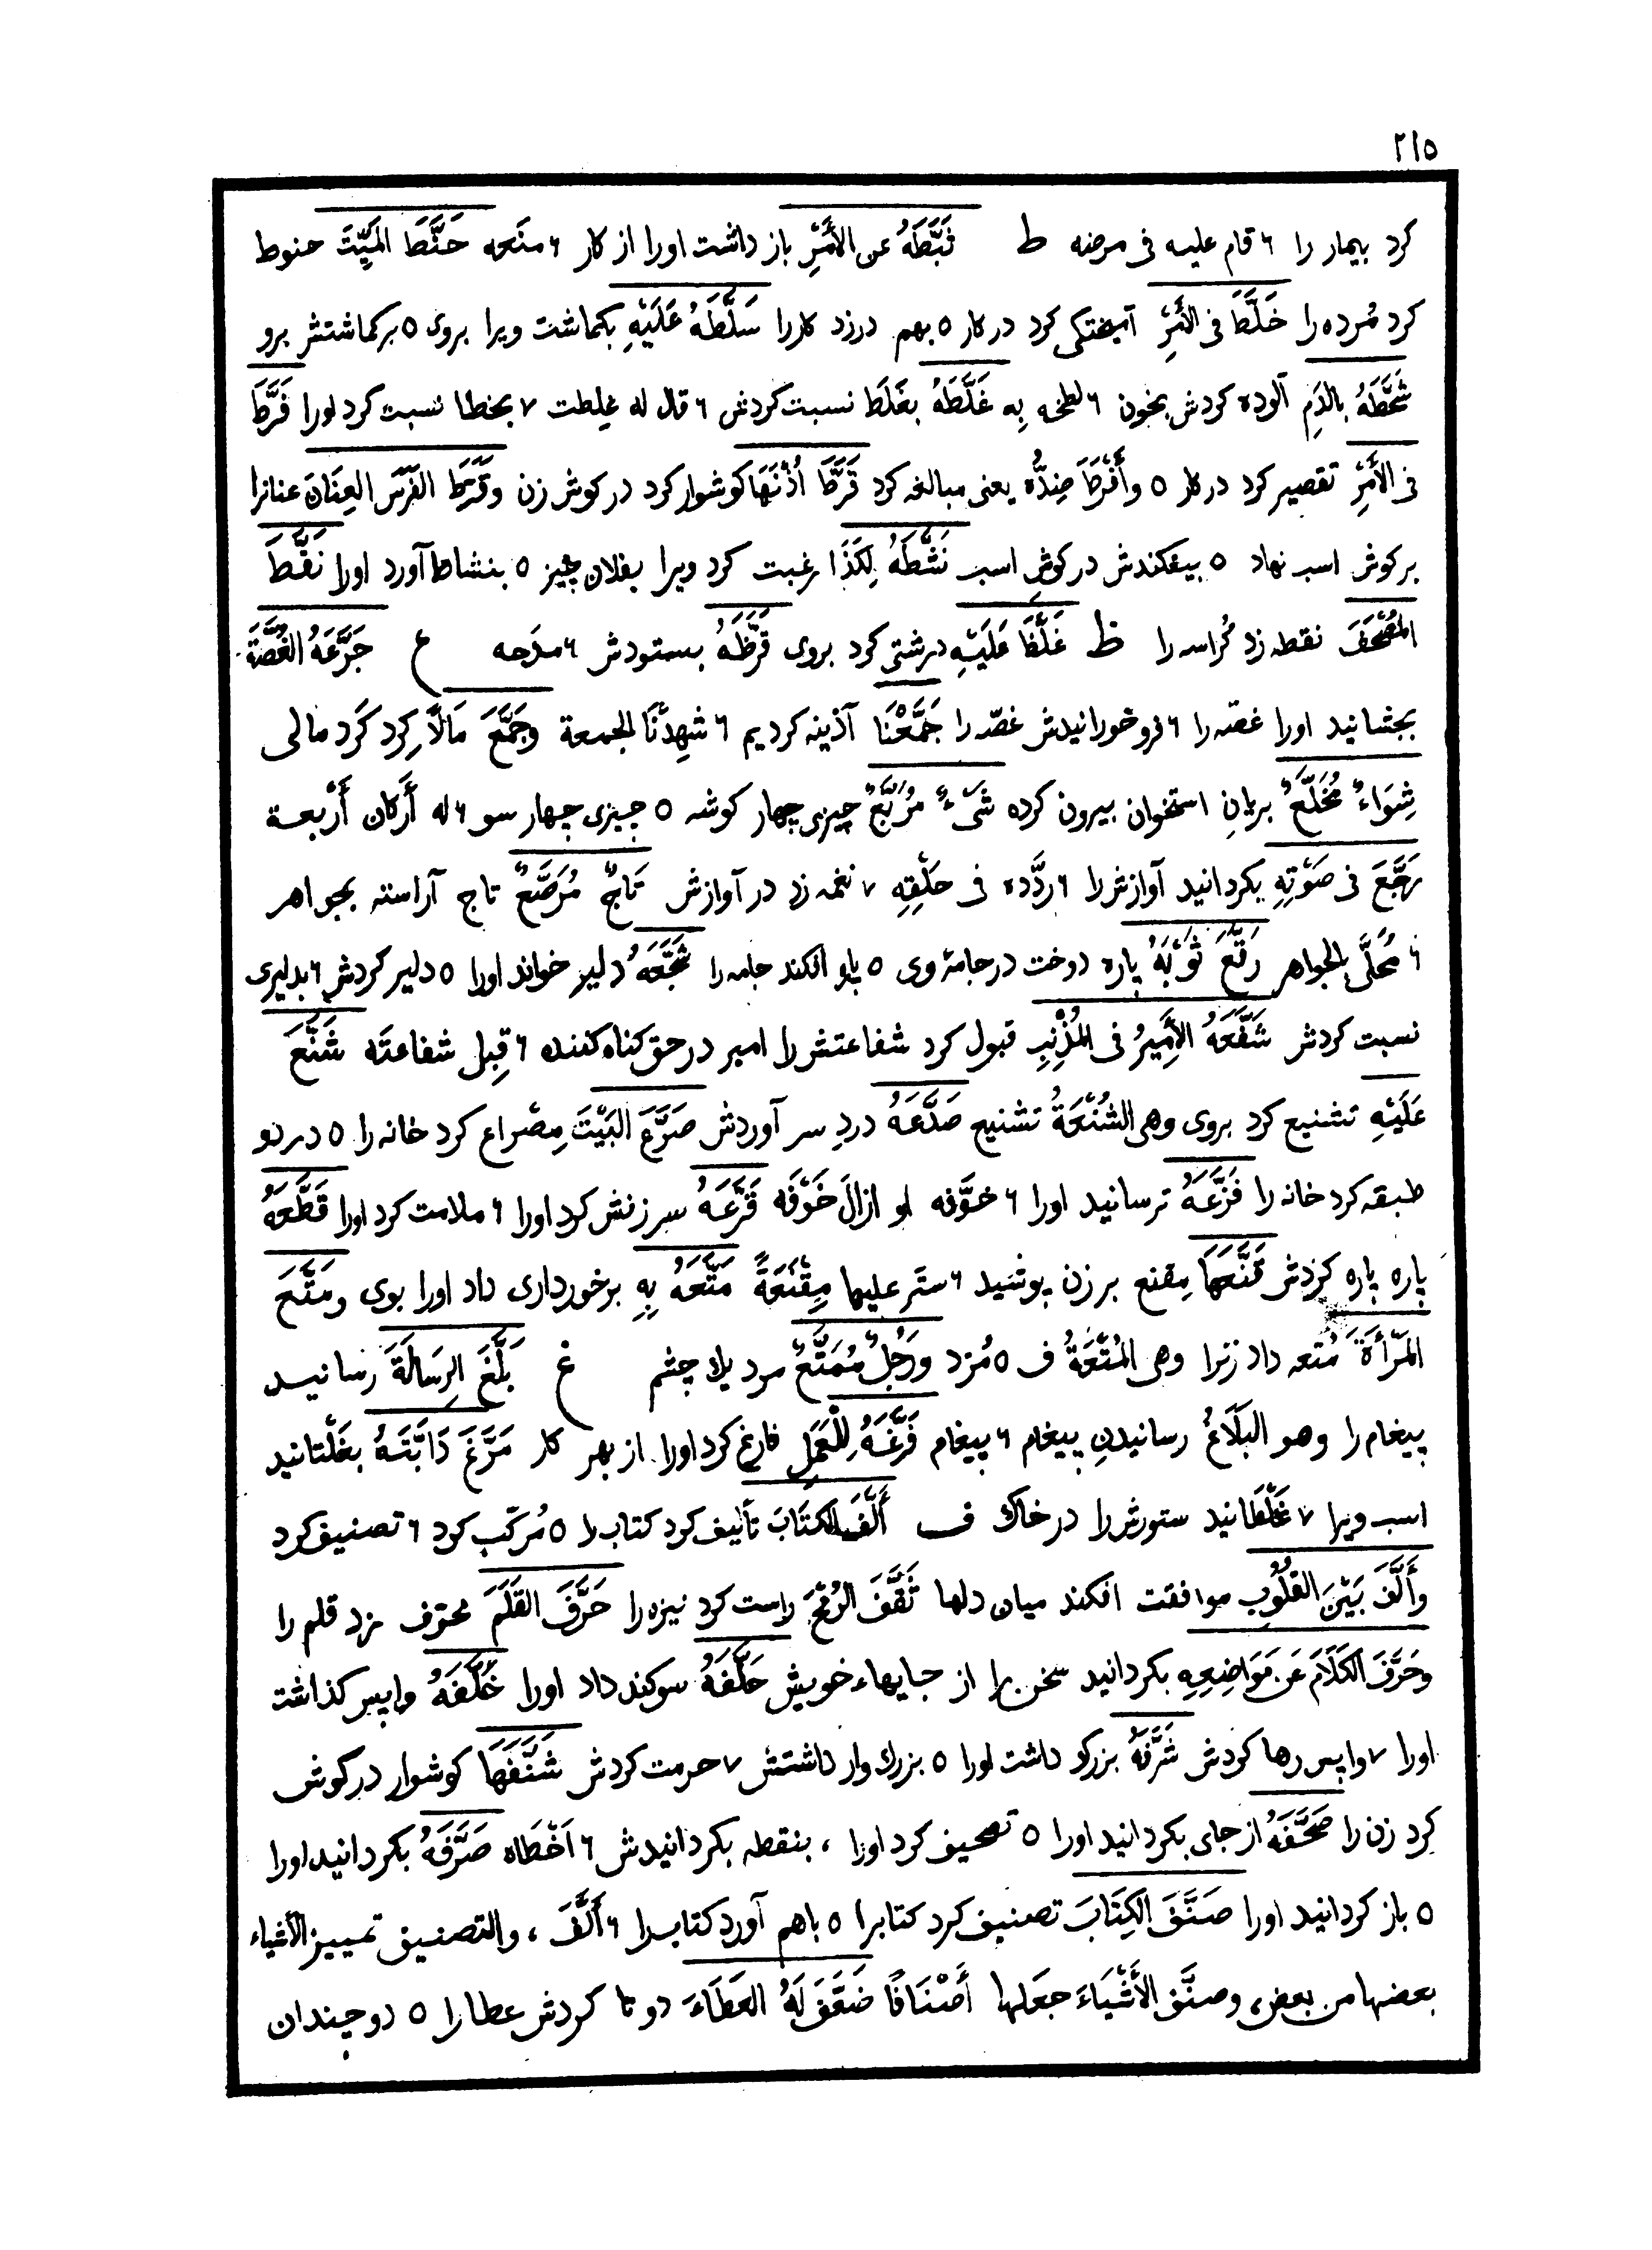 ٢١٥
کرد بیمار را ٦ قام علیه فی مرضه ط ثَبَّطَهُ عن الأَمْرِ باز داشت اورا از کار ٦ منَعه حَنَّطَ المَیِّتَ حنوط
کرد مُرده را خَلَّطَ فی الأَمْرِ آمیختکی کرد در کار ٥ بهم درزد کار را سَلَّطَهُ عَلَیْهِ بکماشت ویرا بروی ٥ برکماشتش برو
شَحَّطَهُ بالدَمِ آلوده کردش بخون ٦ لطخه بِه غَلَّطَهُ بغَلَط نسبت کردش ٦ قال له غلطت ٧ بخطا نسبت کرد اورا فَرَّطَ
فی الأَمْرِ تقصیر کرد در کار ٥ وأَفْرَطَ ضِدُّه یعنی مبالغه کرد قَرَّطَ أُذْنَهَا کوشوار کرد در کوش زن وقَرَّطَ الفَرَسَ العِنَانَ عنانرا
بر کوش اسب نهاد ٥ بیفکندش در کوشِ اسب نَشَّطَهُ لِکَذَا رغبت کرد ویرا بفلان چیز ٥ بنشاط آورد اورا نَقَّطَ
المُصْحَفَ نقطه زد کُراسه را ظ غَلَّظَ عَلَیْهِ درشتی کرد بروی قَرَّظَهُ بستودش ٦ مدَحه ع جَرَّعَهُ الغُصَّةَ
بچشانید اورا غصّه را ٦ فرو خورانیدش غصّه را جَمَّعْنَا آذینه کردیم ٦ شهِدْنَا الجمعة وجَمَّعَ مَالاً کِرد کَرد مالی
شِوَاءٌ مُخَلَّعٌ بریانِ استخوان بیرون کرده شَیْءٌ مُرَبَّعٌ چیزی چهار کوشه ٥ چیزی چهار سو ٦ له أَرکان أَرْبعة
رَجَّعَ فی صَوْتِهِ بکردانید آوازش را ٦ ردَّده فی حَلْقِهِ ٧ نغمه زد در آوازش تَاجٌ مُرَصَّعٌ تاج آراسته بجواهر
٦ مُحَلًّی بالجواهر رَقَّعَ ثَوْبَهُ پاره دوخت در جامهٔ وی ٥ پاره افکند جامه را شَجَّعَهُ دلیر خواند اورا ٥ دلیر کردش ٦ بدلیری
نسبت کردش شَفَّعَهُ الأَمِیرُ فی المُذْنِبِ قبول کرد شفاعتش را امیر در حق کناه کننده ٦ قبِل شفاعته شَنَّعَ
عَلَیْهِ تشنیع کرد بروی وهی الشُنْعَةُ تشنیع صَدَّعَهُ دردِ سر آوردش صَرَّعَ البَیْتَ مِصْراع کرد خانه را ٥ در دو
طبقه کرد خانه را فَزَّعَهُ ترسانید اورا ٦ خوَّفه او ازالَ خَوْفَه قَرَّعَهُ سرزنش کرد اورا ٦ ملامت کرد اورا قَطَّعَهُ
پاره پاره کردش قَنَّعَهَا مِقنع بر زن پوشید ٦ ستَر علیها مِقْنَعَةً مَتَّعَهُ بِهِ برخورداری داد اورا بوی ومَتَّعَ
المَرْأَةَ مُتعه داد زنرا وهی المُتْعَةُ ف ٥ مُزد ورَجُلٌ مُمَتَّعٌ مرد یک چشم غ بَلَّغَ الرِسَالَةَ رسانید
پیغام را وهو البَلَاغُ رسانیدنِ پیغام ٦ پیغام فَرَّغَهُ لِلْعَمَلِ فارغ کرد اورا از بهر کار مَرَّغَ دَابَّتَهُ بغَلْتانید
اسب ویرا ٧ غَلْطَانید ستورش را در خاک ف أَلَّفَ الکِتَابَ تألیف کرد کتاب را ٥ مُرکّب کرد ٦ تصنیف کرد
وأَلَّفَ بَیْنَ القُلُوبِ موافقت افکند میان دلها ثَقَّفَ الرُمْحَ راست کرد نیزه را حَرَّفَ القَلَمَ محرّف زد قلم را
وحَرَّفَ الکَلَامَ عَن مَوَاضِعِهِ بکردانید سخن را از جایهاء خویش حَلَّفَهُ سوکند داد اورا خَلَّفَهُ واپس کذاشت
اورا ٧ واپس رها کردش شَرَّفَهُ بزرک داشت اورا ٥ بزرك وار داشتش ٧ حرمت کردش شَنَّفَهَا کوشوار در کوش
کرد زن را صَحَّفَهُ از جای بکردانید اورا ٥ تصحیف کرد اورا ، بنقطه بکردانیدش ٦ اَخْطَاه صَرَّفَهُ بکردانید اورا
٥ باز کردانید اورا صَنَّفَ الکِتَابَ تصنیف کرد کتابرا ٥ باهم آورد کتاب را ٦ أَلَّفَ ، والتصنیف تمییز الأشیاء
بعضها من بعض، وصنَّف الأَشْیَاءَ جعَلها أَصْنَافًا ضَعَّفَ لَهُ العَطَاءَ دو تا کردش عطا را ٥ دو چندان